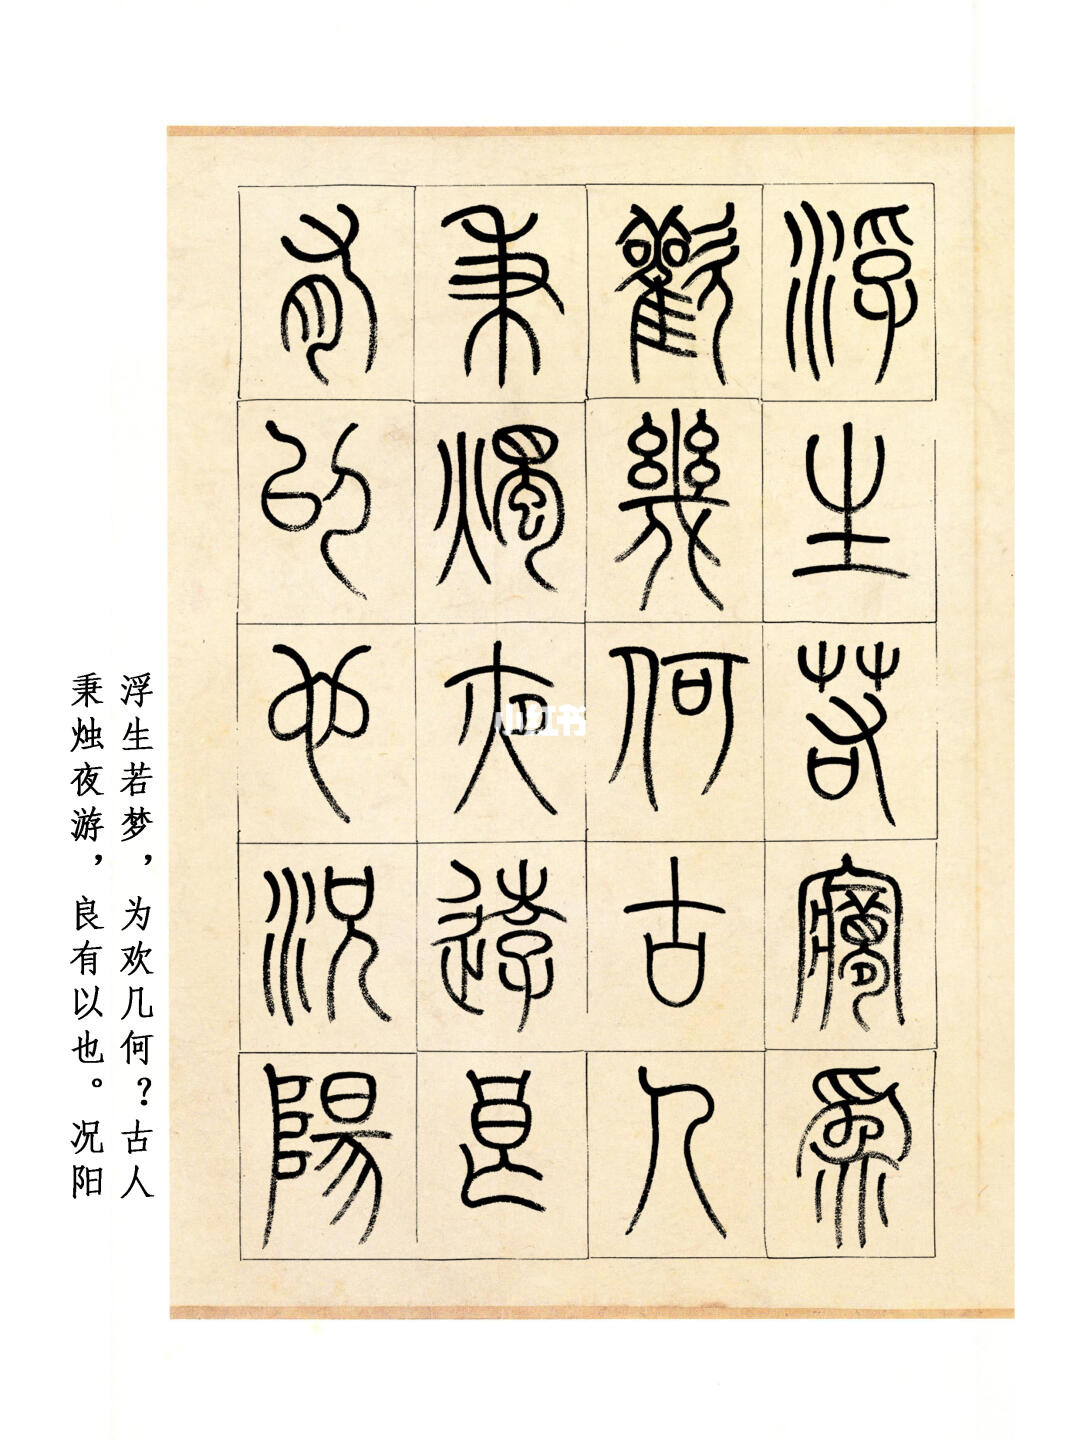 浮生若夢為
歡幾何古人
秉燭夜遊良
有以也況陽
浮生若梦，为欢几何？古人
秉烛夜游，良有以也。况阳
小红书